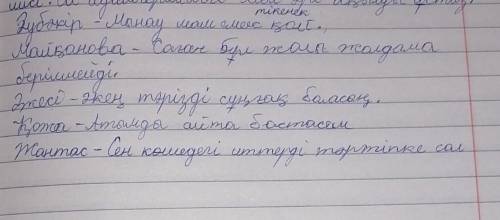 тікенек
Зубайір - Манау мам емес қой.,
Майқанова - Саған бұл жолы жолдама
берілмейді.
Әжесі - әкең тәрізді сұңғақ баласың.
Қожа - Атымды айта бастасам
Жантас - Сен көшедегі иттерді тәртіпке сал